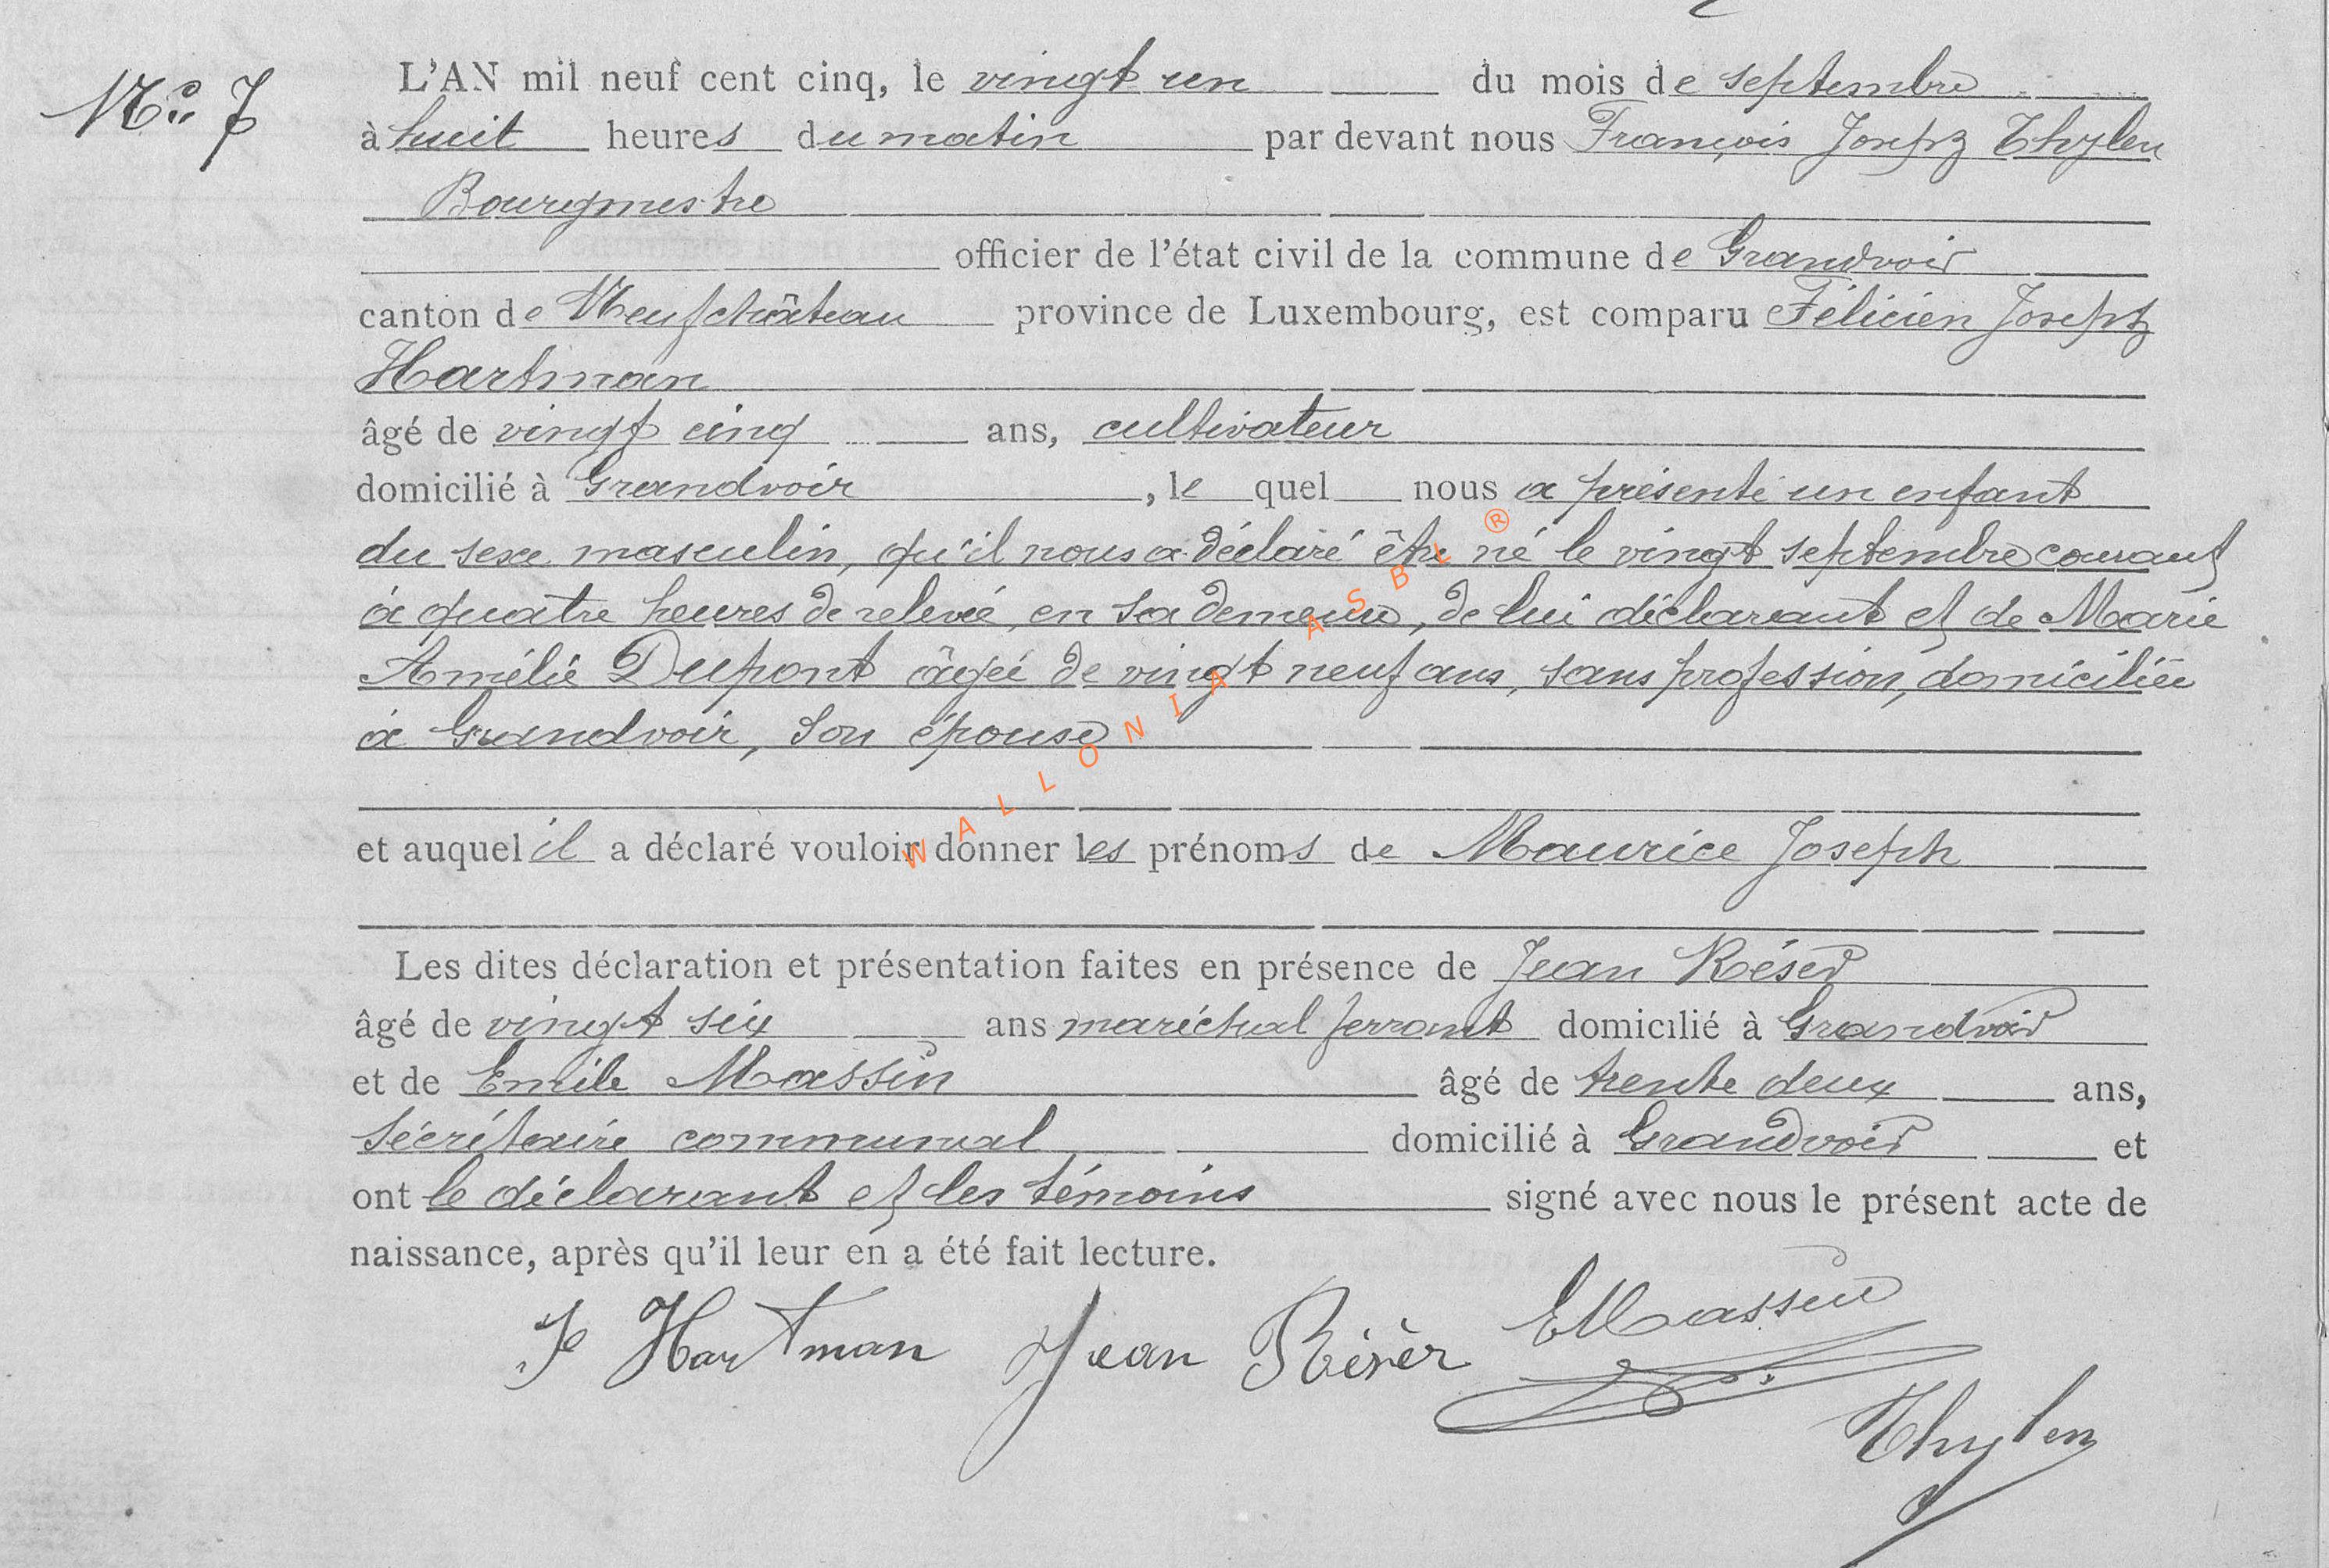 N° 7
L'AN mil neuf cent cinq, le vingt un du mois de septembre
à huit heures du matin par devant nous François Joseph Thylen
Bourgmestre
officier de l'état civil de la commune de Grandvoir
canton de Neufchâteau province de Luxembourg, est comparu Félicien Joseph
Hartman
âgé de vingt cinq ans, cultivateur
domicilié à Grandvoir, le quel nous a présenté un enfant
du sexe masculin, qu'il nous a déclaré être né le vingt septembre courant
à quatre heures de relevée, en sa demeure, de lui déclarant et de Marie
Amélie Dupont âgée de vingt neuf ans, sans profession, domiciliée
à Grandvoir, son épouse
et auquel il a déclaré vouloir donner les prénoms de Maurice Joseph
Les dites déclaration et présentation faites en présence de Jean Réser
âgé de vingt six ans maréchal ferrant domicilié à Grandvoir
et de Emile Massin âgé de trente deux ans,
sécrétaire communal domicilié à Grandvoir et
ont le déclarant et les témoins signé avec nous le présent acte de
naissance, après qu'il leur en a été fait lecture.
Hartman Jean Résèr EMassin
Thylen
WALLONIA ASBL ®